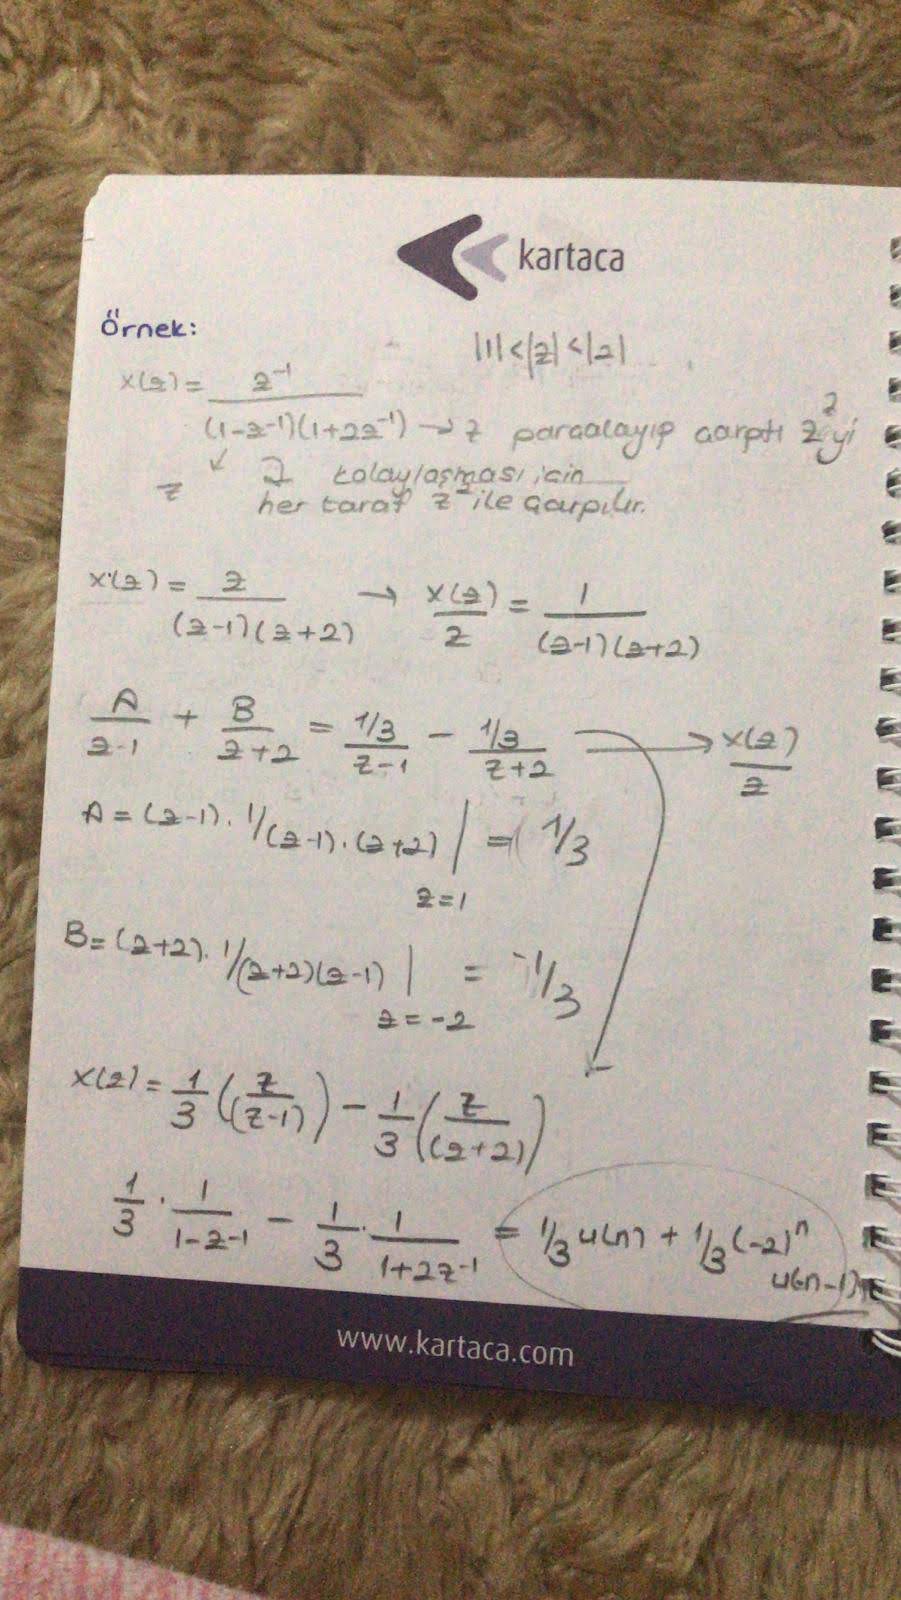 kartaca
Örnek:
|1|<|z|<|2|
x(z) = z⁻¹ / (1-z⁻¹)(1+2z⁻¹) → z parçalayıp çarptı z² yi
z kolaylaşması için
her taraf z² ile çarpılır.
x(z) = z / (z-1)(z+2) → x(z)/z = 1 / (z-1)(z+2)
A/(z-1) + B/(z+2) = 1/3/(z-1) - 1/3/(z+2) → x(z)/z
A = (z-1) . 1/(z-1).(z+2) | = 1/3
z=1
B = (z+2). 1/(z+2)(z-1) | = -1/3
z=-2
x(z) = 1/3 (z/(z-1)) - 1/3 (z/(z+2))
1/3 . 1/(1-z-1) - 1/3 . 1/(1+2z⁻¹) = 1/3 u(n) + 1/3 (-2)ⁿ
u(-n-1)
www.kartaca.com